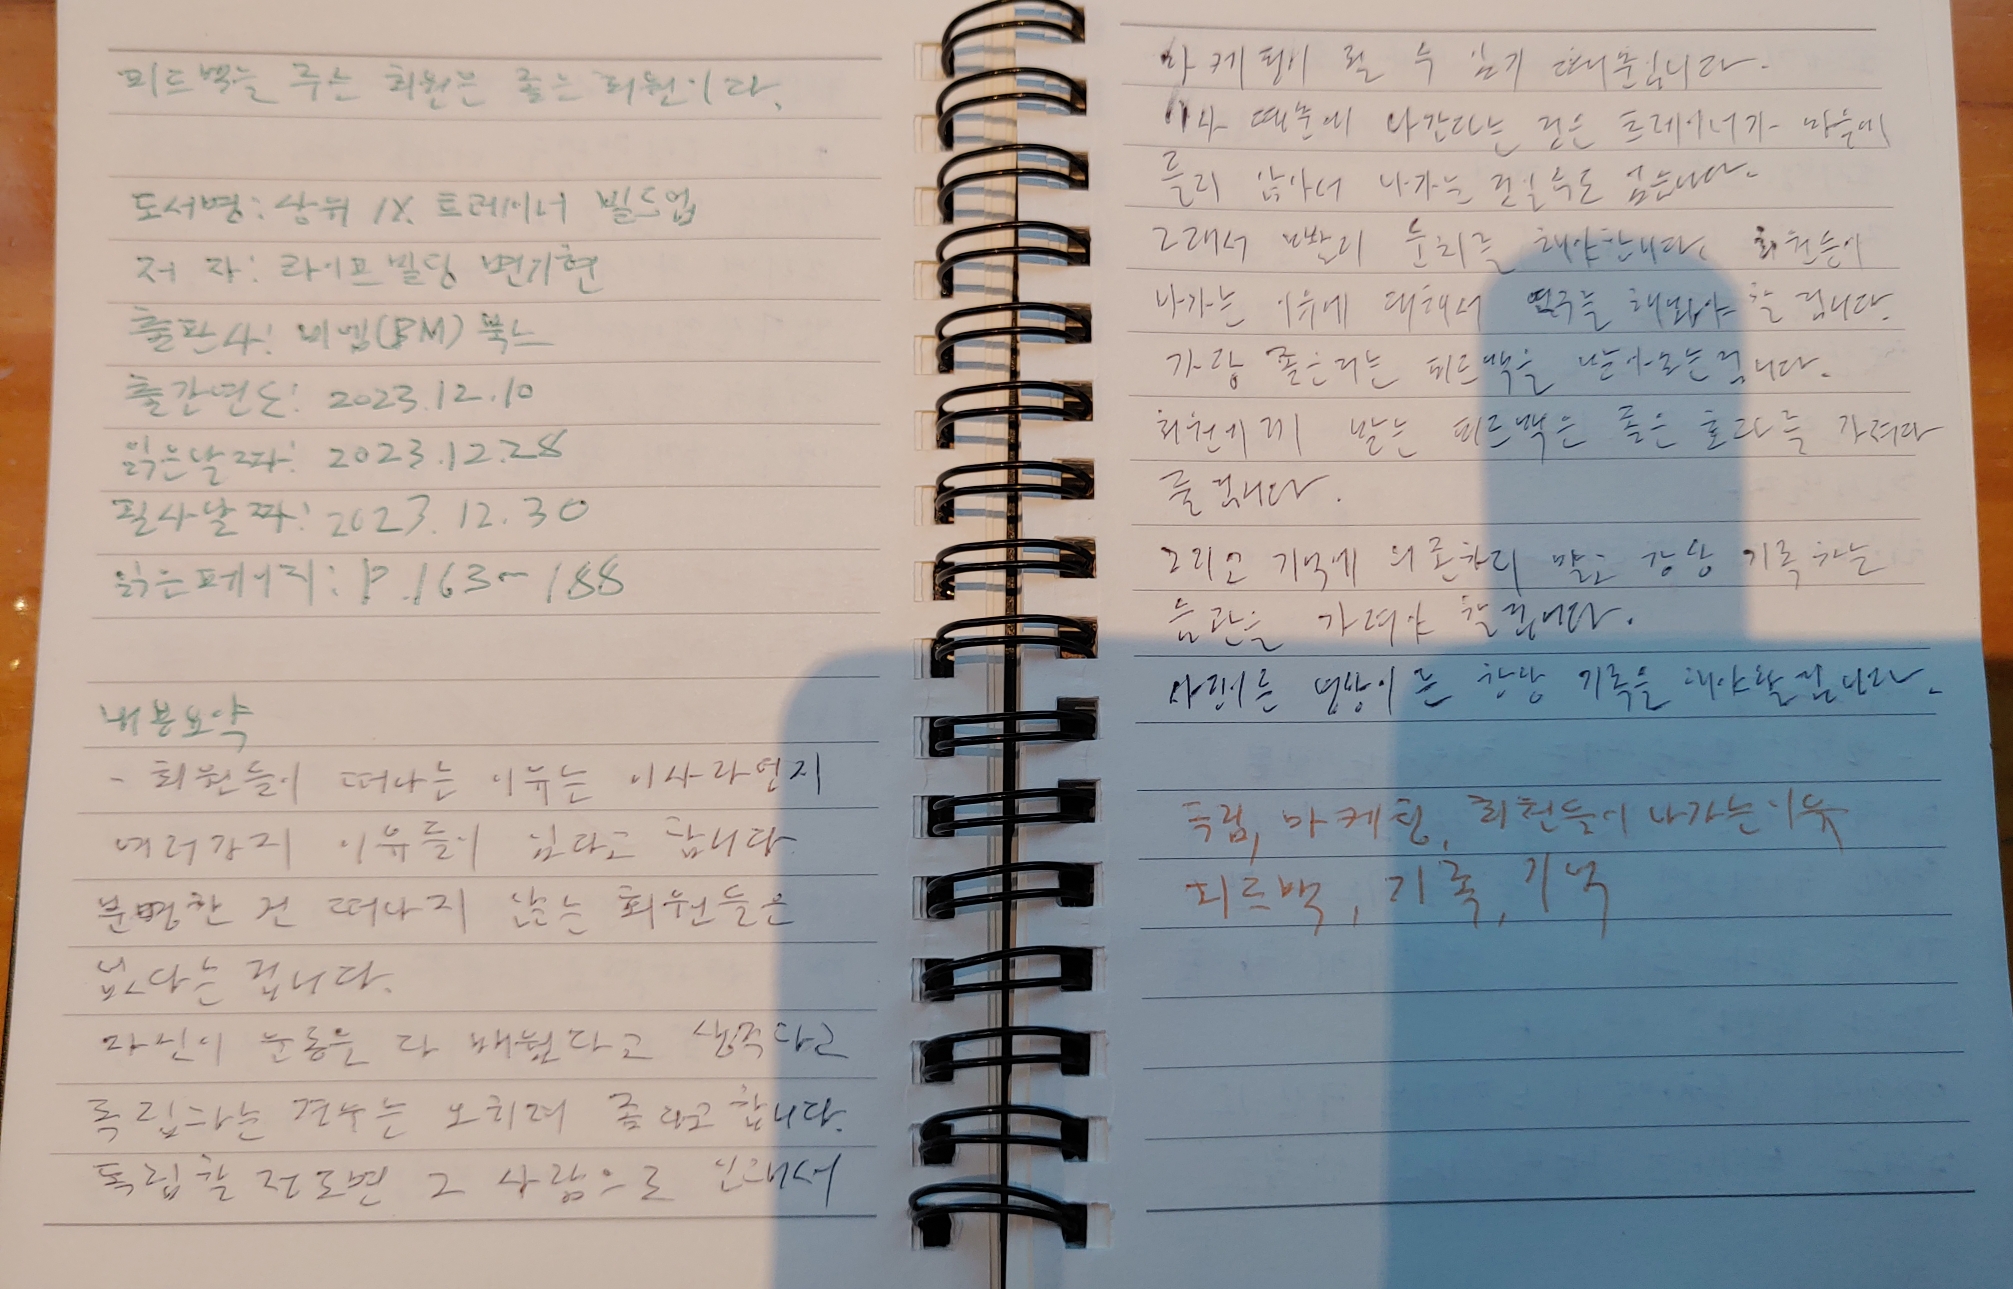 피드백을 주는 회원은 좋은 회원이다.
도서명: 상위 1% 트레이너 빌드업
저 자: 라이프빌딩 변기현
출판사: 비엠(BM) 북스
출간연도: 2023.12.10
읽은날짜: 2023.12.28
필사날짜: 2023.12.30
읽은페이지: P.163~188
내용요약
- 회원들이 떠나는 이유는 이사라던지
여러가지 이유들이 있다고 합니다
분명한 건 떠나지 않는 회원들은
없다는 겁니다.
자신이 운동을 다 배웠다고 생각하고
독립하는 경우는 오히려 좋다고 합니다.
독립할 정도면 그 사람으로 인해서
마케팅이 될 수 있기 때문입니다.
이사 때문에 나간다는 것은 트레이너가 마음에
들지 않아서 나가는 것일수도 있습니다.
그래서 분리를 해야합니다. 회원들이
나가는 이유에 대해서 연구를 해봐야 할 겁니다.
가장 좋은거는 피드백을 받아보는겁니다.
회원에게 받는 피드백은 좋은 효과를 가져다
줄겁니다.
그리고 기억에 의존하지 말고 항상 기록하는
습관을 가져야 할겁니다.
사진이든 영상이든 항상 기록을 해야할겁니다.
독립, 마케팅, 회원들이 나가는이유
피드백, 기록, 기억